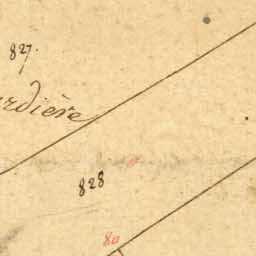 827.
rdière
828
80